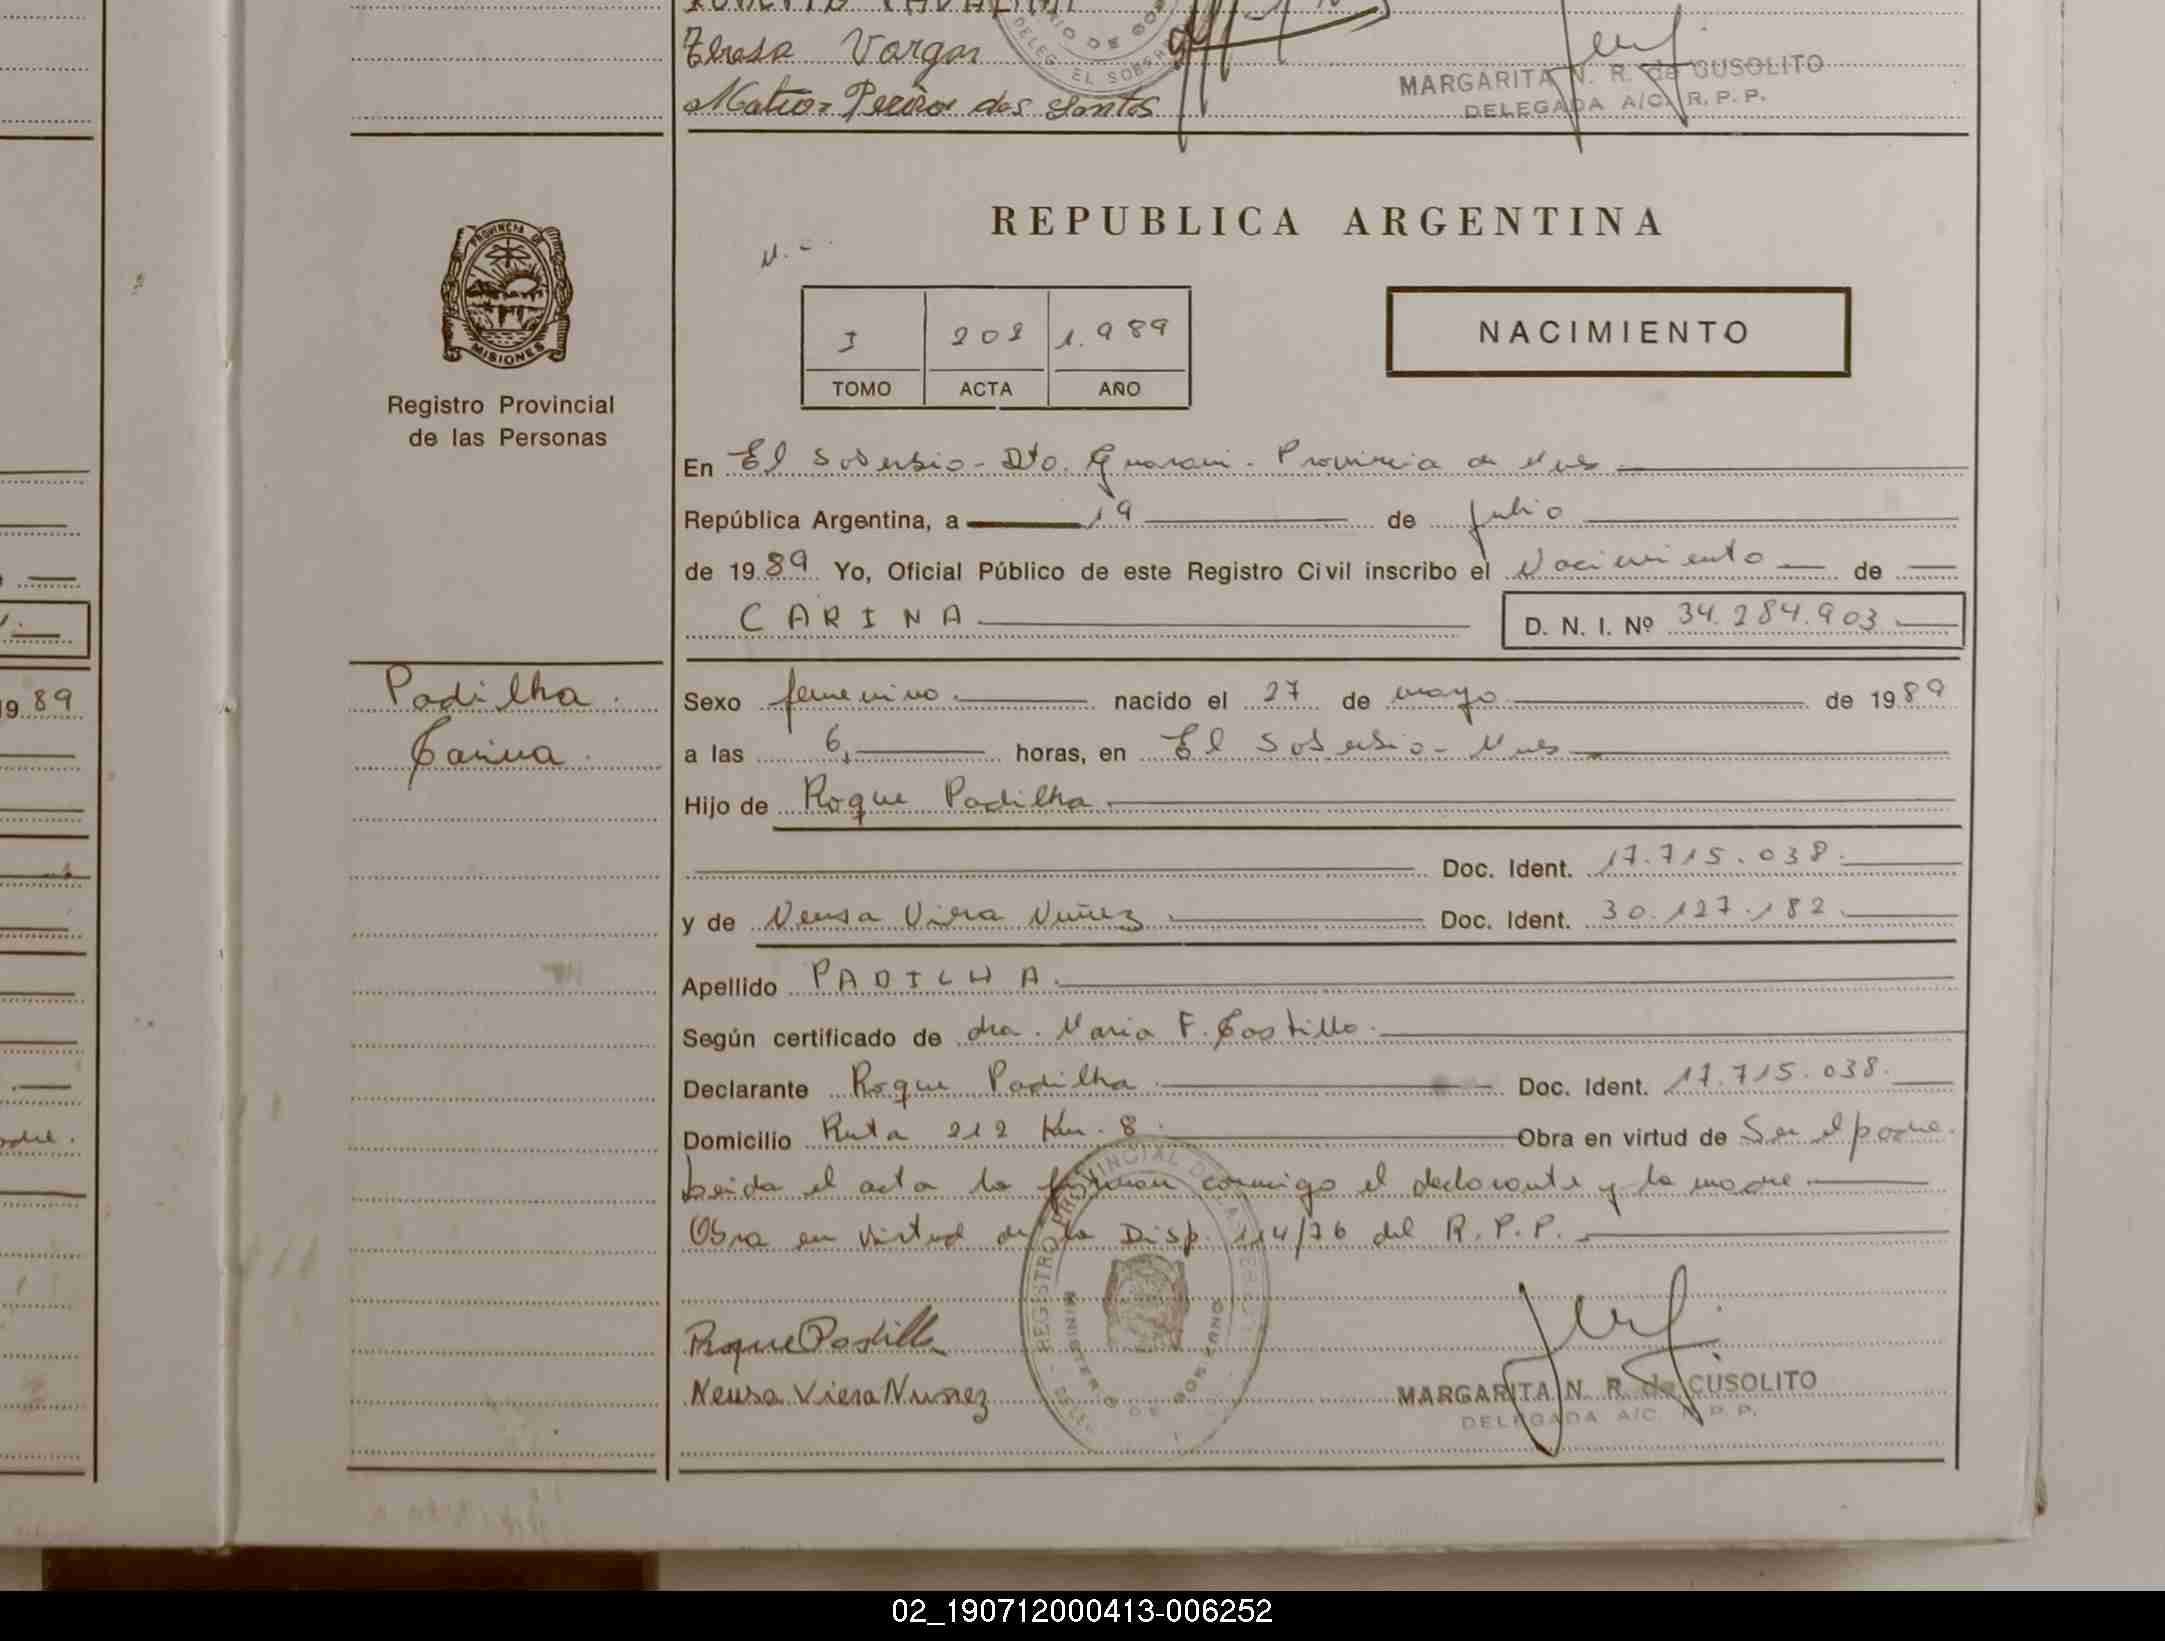 Teresa Vargas
dos Santos
MARGARITA N. R. de CUSOLITO
DELEGADA A/C. R. P. P.
REPUBLICA ARGENTINA
PROVINCIA DE
MISIONES
Registro Provincial
de las Personas
I 202 1.989
TOMO ACTA AÑO
NACIMIENTO
En El Soberbio - Dto. Guarani - Provincia de Mnes
República Argentina, a 19 de julio
de 1989 Yo, Oficial Público de este Registro Civil inscribo el Nacimiento de
CARINA
D. N. I. Nº 34.284.903
Padilha
Carina
Sexo femenino nacido el 27 de mayo de 1989
a las 6 horas, en El Soberbio - Mnes
Hijo de Roque Padilha
Doc. Ident. 17.715.038
y de Neusa Viera Nuñez Doc. Ident. 30.127.182
Apellido PADILHA
Según certificado de dra. Maria F. Castillo
Declarante Roque Padilha Doc. Ident. 17.715.038
Domicilio Ruta 212 Km. 8 Obra en virtud de Ser el padre.
Leida el acta la firman conmigo el declarante y la madre
Obra en virtud de la Disp. 114/76 del R.P.P.
Roque Padilha
Neusa Viera Nunez
MARGARITA N. R. de CUSOLITO
DELEGADA A/C. R. P. P.
1989
02_190712000413-006252